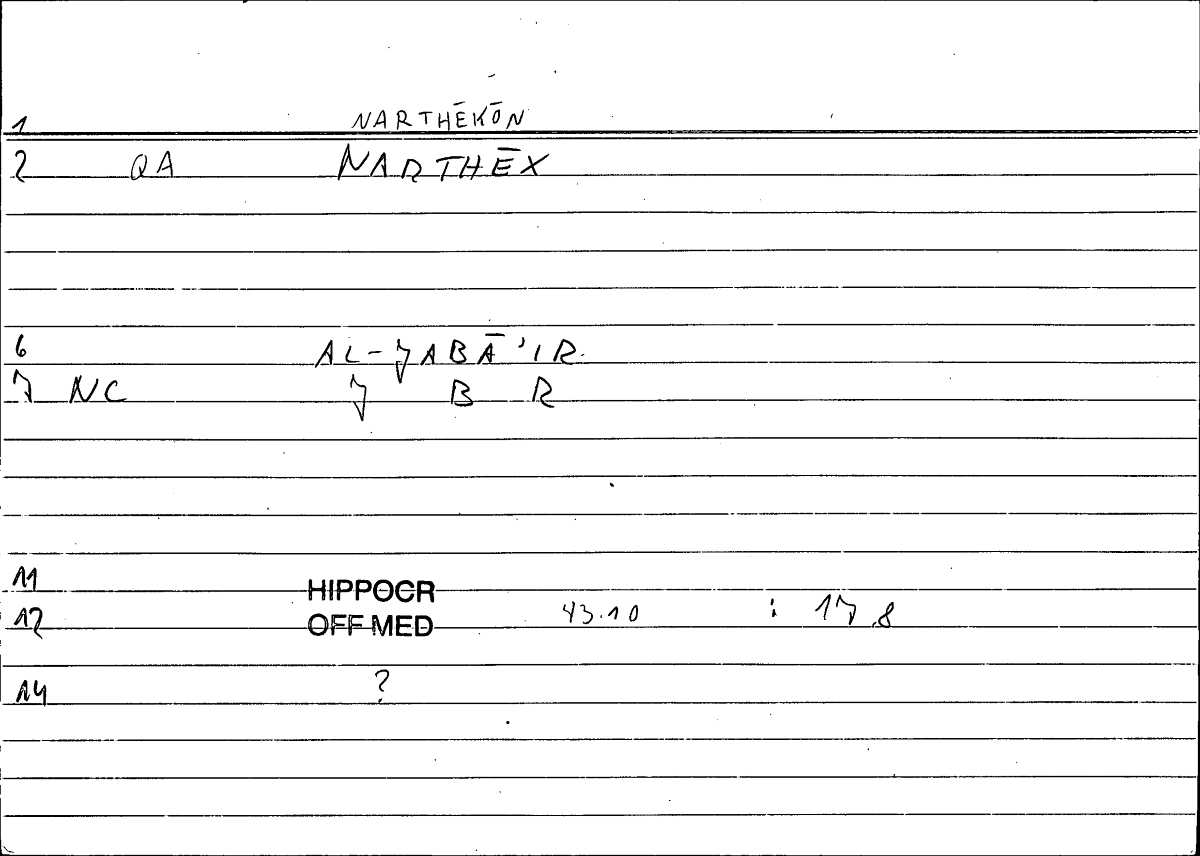 1 NARTHĒKŌN
2 QA NARTHĒX
6 AL-JABĀ'IR
7 NC J B R
11 HIPPOCR
12 OFF MED 43.10 : 17.8
14 ?